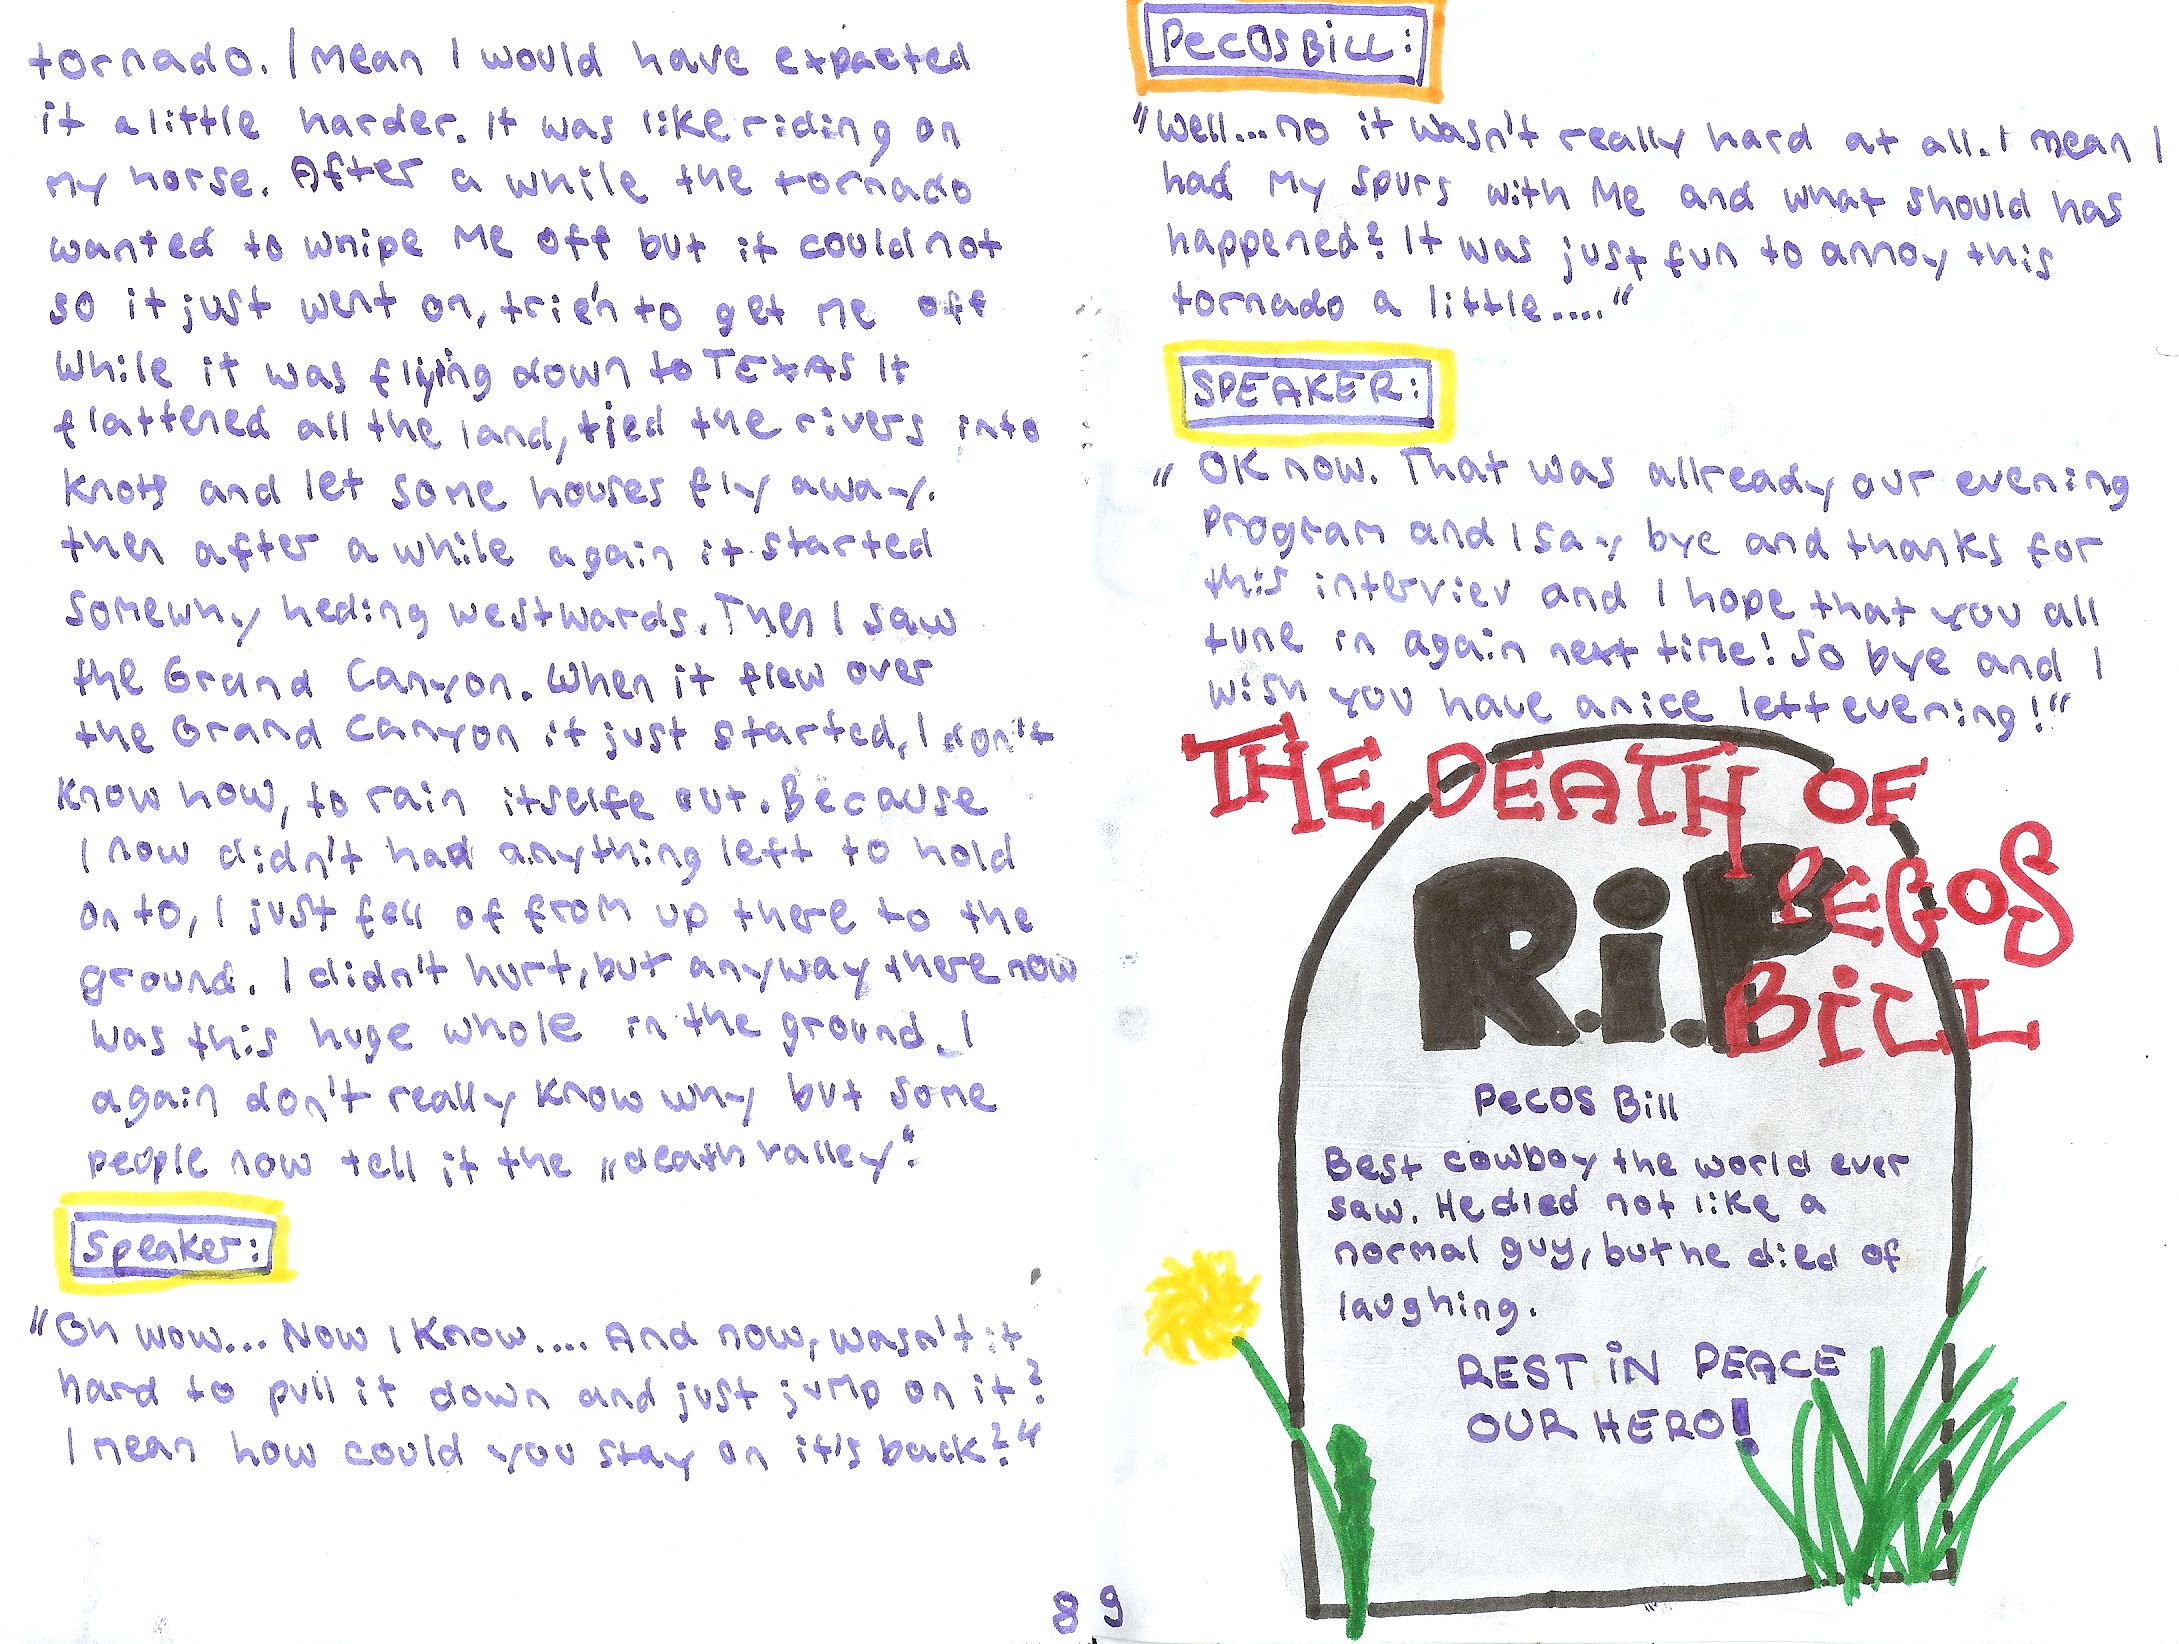 tornado. I mean I would have expacted
it a little harder. It was like riding on
my horse. After a while the tornado
wanted to whipe me off but it could not
so it just went on, trie'n to get me off
While it was flying down to TEXAS It
flattened all the land, tied the rivers into
knots and let some houses fly away.
then after a while again it started
somewhy heding westwards. Then I saw
the Grand Canyon. When it flew over
the Grand Canyon it just started, I don't
know how, to rain itselfe out. Because
I now didn't had anything left to hold
on to, I just fell of from up there to the
ground. I didn't hurt, but anyway there now
was this huge whole in the ground. I
again don't really know why but some
people now tell it the „death valley".
Speaker:
"Oh wow... Now I know.... And now, wasn't it
hard to pull it down and just jump on it?
I mean how could you stay on it's back?"
8
Pecos Bill:
"Well...no it wasn't really hard at all. I mean I
had my spurs with me and what should has
happened? It was just fun to annoy this
tornado a little...."
SPEAKER:
„ OK now. That was allready our evening
program and I say bye and thanks for
this interviev and I hope that you all
tune in again next time! So bye and I
wish you have a nice left evening!"
THE DEATH OF
PECOS
BILL
R.i.P
Pecos Bill
Best cowboy the world ever
saw. He died not like a
normal guy, but he died of
laughing.
REST IN PEACE
OUR HERO!
9